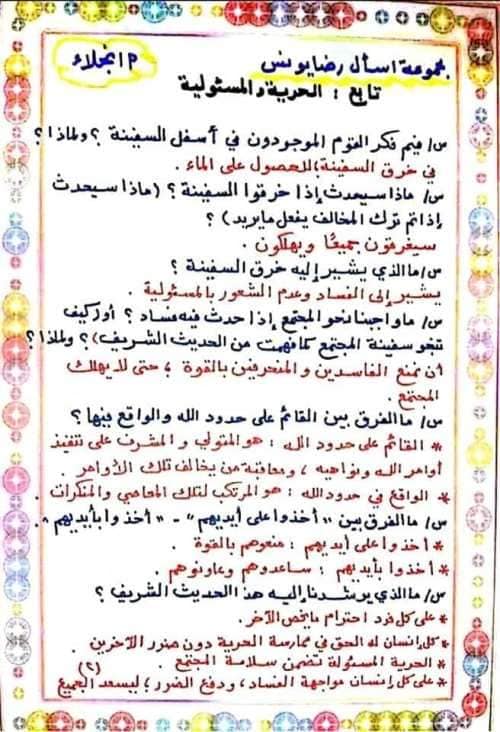 مجموعة اسأل رضا يونس
م انجلاء
تابع : الحرية والمسئولية
س/ فيم فكر القوم الموجودون في أسفل السفينة ؟ ولماذا ؟
في خرق السفينة؛ للحصول على الماء .
س/ ماذا سيحدث إذا خرقوا السفينة ؟ (ماذا سيحدث
إذا تم ترك المخالف يفعل ما يريد) ؟
سيغرقون جميعًا ويهلكون .
س/ ما الذي يشير إليه خرق السفينة ؟
يشير إلى الفساد وعدم الشعور بالمسئولية .
س/ ما واجبنا نحو المجتمع إذا حدث فيه فساد ؟ أو( كيف
تنجو سفينة المجتمع كما فهمت من الحديث الشريف) ؟ ولماذا ؟
أن نمنع الفاسدين والمنحرفين بالقوة ؛ حتى لا يهلك
المجتمع .
س/ ما الفرق بين القائم على حدود الله والواقع فيها ؟
* القائم على حدود الله : هو المتولي والمشرف على تنفيذ
أوامر الله ونواهيه ، ومعاقبة من يخالف تلك الأوامر .
* الواقع في حدود الله : هو المرتكب لتلك المعاصي والمنكرات .
س/ ما الفرق بين "أخذوا على أيديهم" - "أخذوا بأيديهم" .
* أخذوا على أيديهم : منعوهم بالقوة .
* أخذوا بأيديهم : ساعدوهم وعاونوهم .
س/ ما الذي يرشدنا إليه هذا الحديث الشريف ؟
* على كل فرد احترام ما يخص الآخر .
* كل إنسان له الحق في ممارسة الحرية دون ضرر الآخرين .
* الحرية المسئولة تضمن سلامة المجتمع .
* على كل إنسان مواجهة الفساد، ودفع الضرر ؛ ليسعد الجميع
(٢)